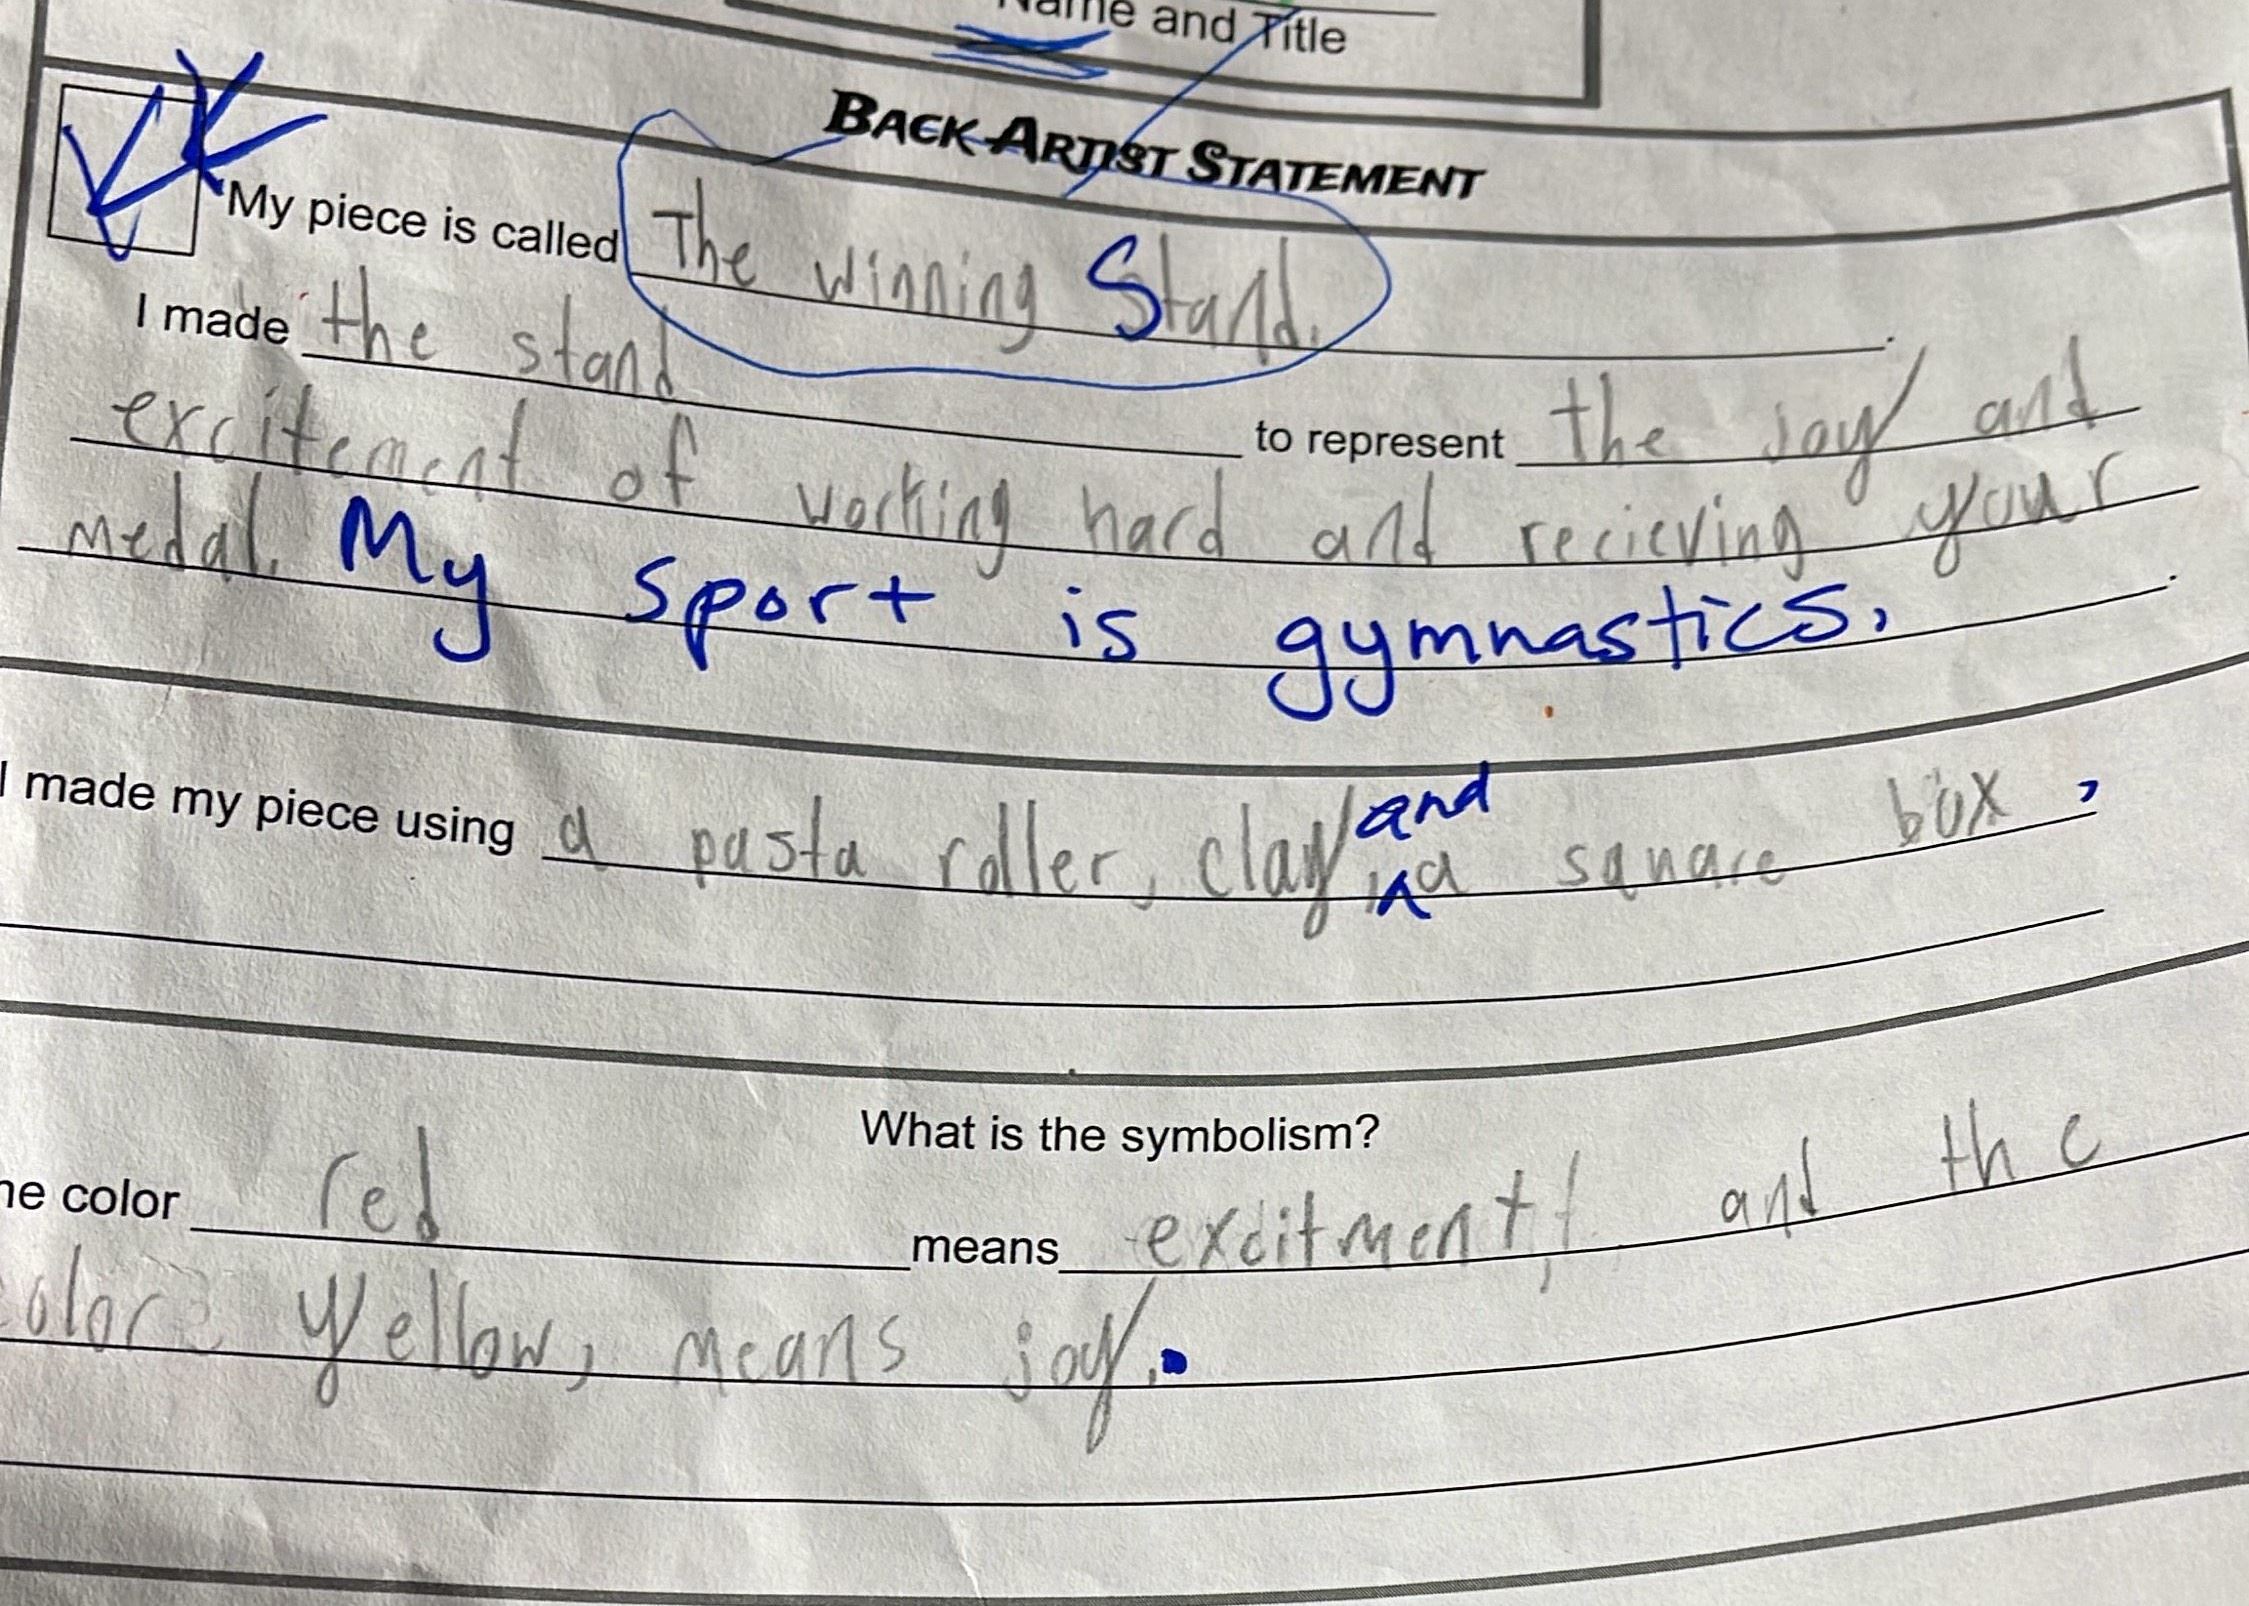 Name and Title
BACK ARTIST STATEMENT
My piece is called The winning Stand.
I made the stand to represent the joy and
excitement of working hard and recieving your
medal. My sport is gymnastics.
I made my piece using a pasta roller, clay and a square box,
What is the symbolism?
he color red means excitment, and the
color yellow, means joy.